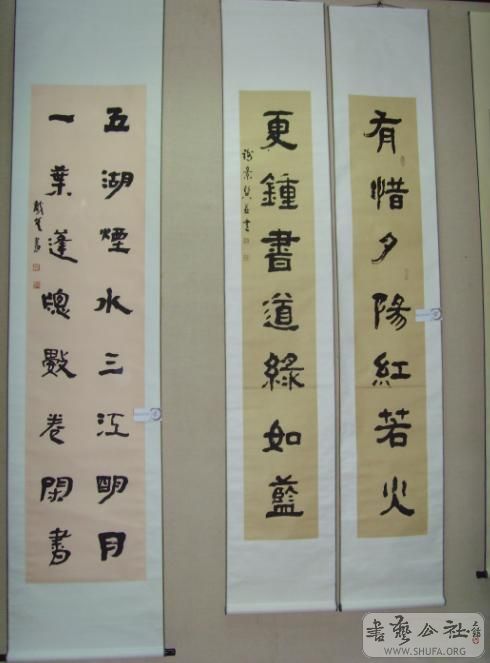 有惜夕陽紅若火
更鍾書道緣如藍
五湖煙水三江朙月
一葉蓬牕數卷閑書
書藝公社
WWW.SHUFA.ORG